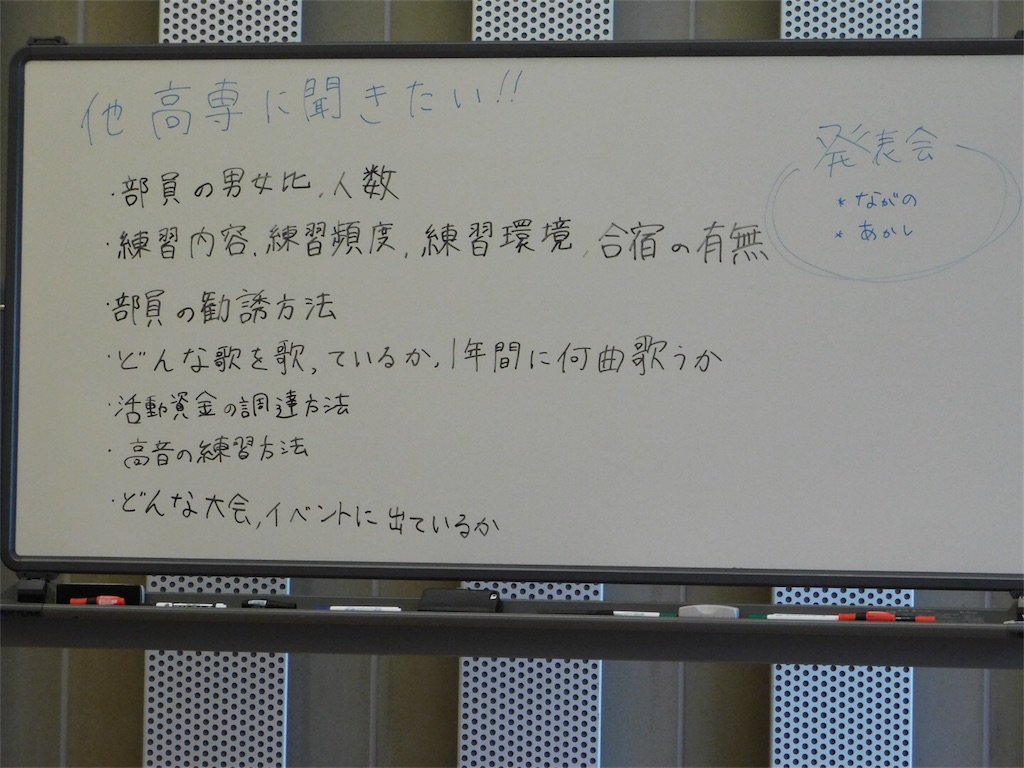 他高専に聞きたい!!
・部員の男女比、人数
・練習内容、練習頻度、練習環境、合宿の有無
・部員の勧誘方法
・どんな歌を歌っているか、1年間に何曲歌うか
・活動資金の調達方法
・高音の練習方法
・どんな大会、イベントに出ているか
発表会
* ながの
* あかし